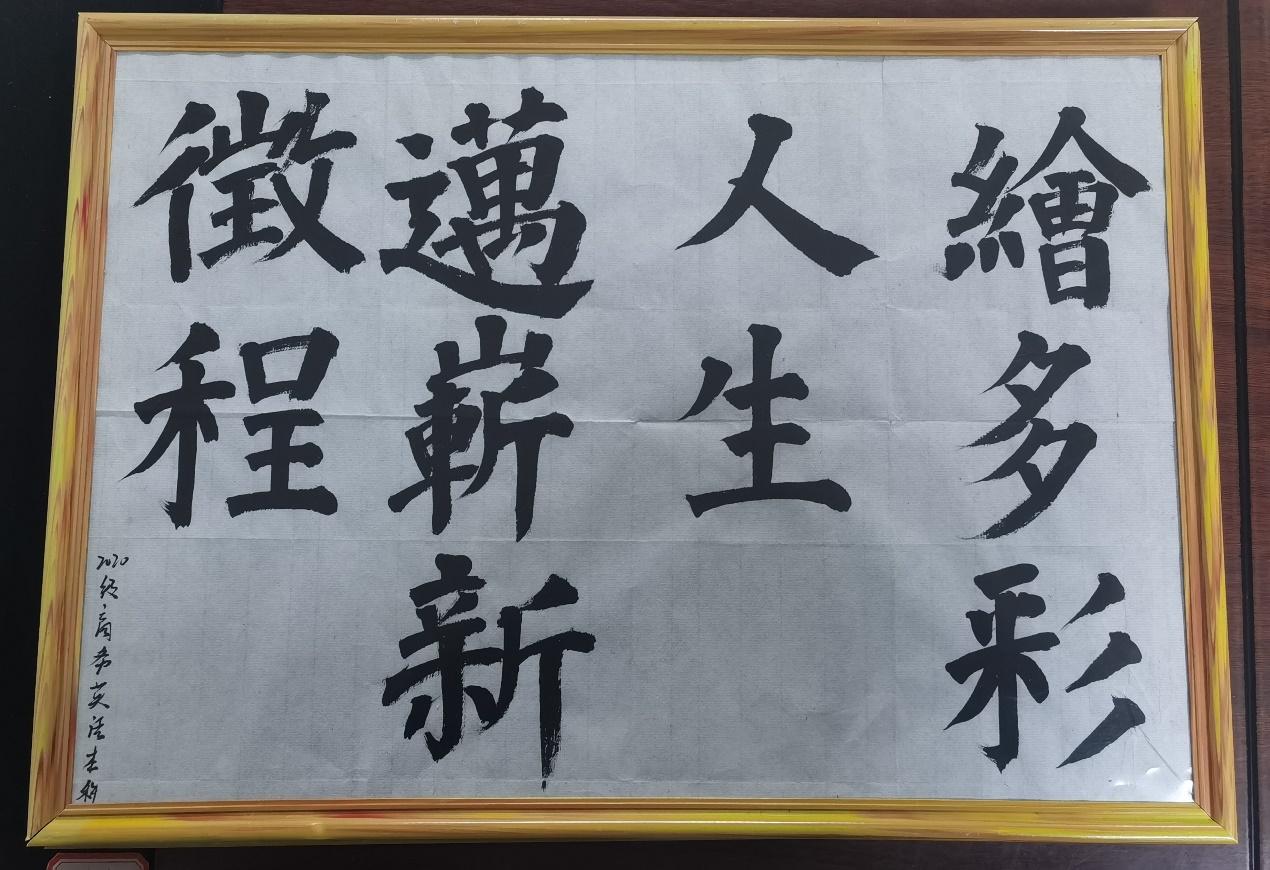 繪多彩
人生
邁嶄新
徵程
2020级商务英语本科